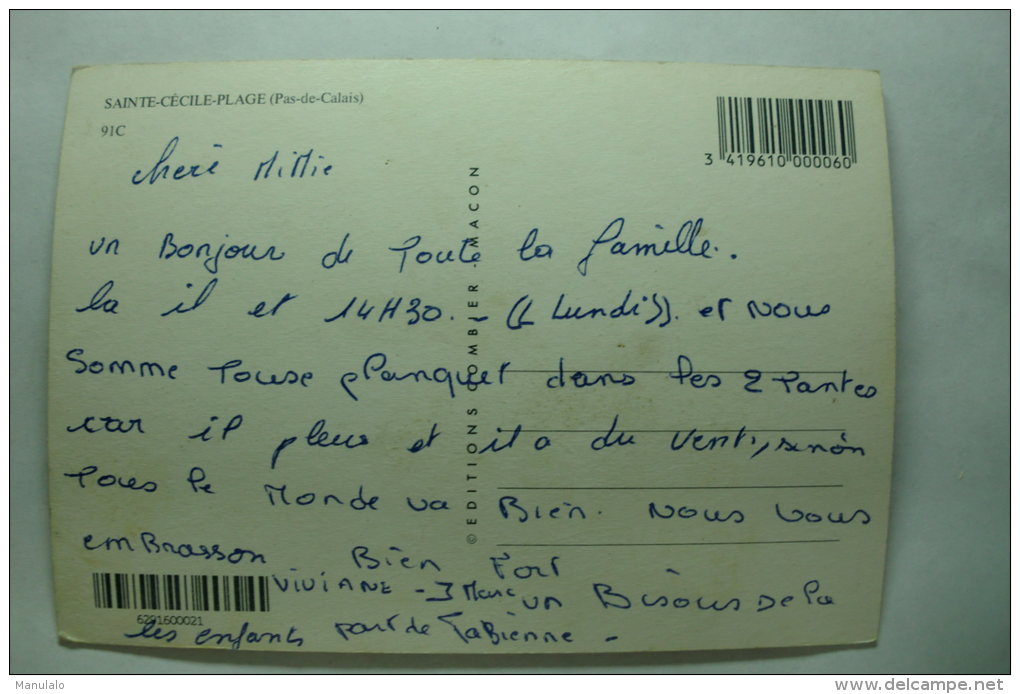 SAINTE-CÉCILE-PLAGE (Pas-de-Calais)
91C
3 419610 000060
cheré MiMie
un Bonjour de Toute la famille.
la il et 14H30. - (( Lundi )). et Nous
Somme Touse planquet dans les 2 Tantes
car il pleus et il a du vent, sinon
Tous le Monde va Bien. Nous vous
emBrasson Bien Fort
VIVIANE - J Marc un Bisous De la
les enfants part de FaBienne -
6291600021
© EDITIONS COMBIER MACON
Manulalo
delcampe.net